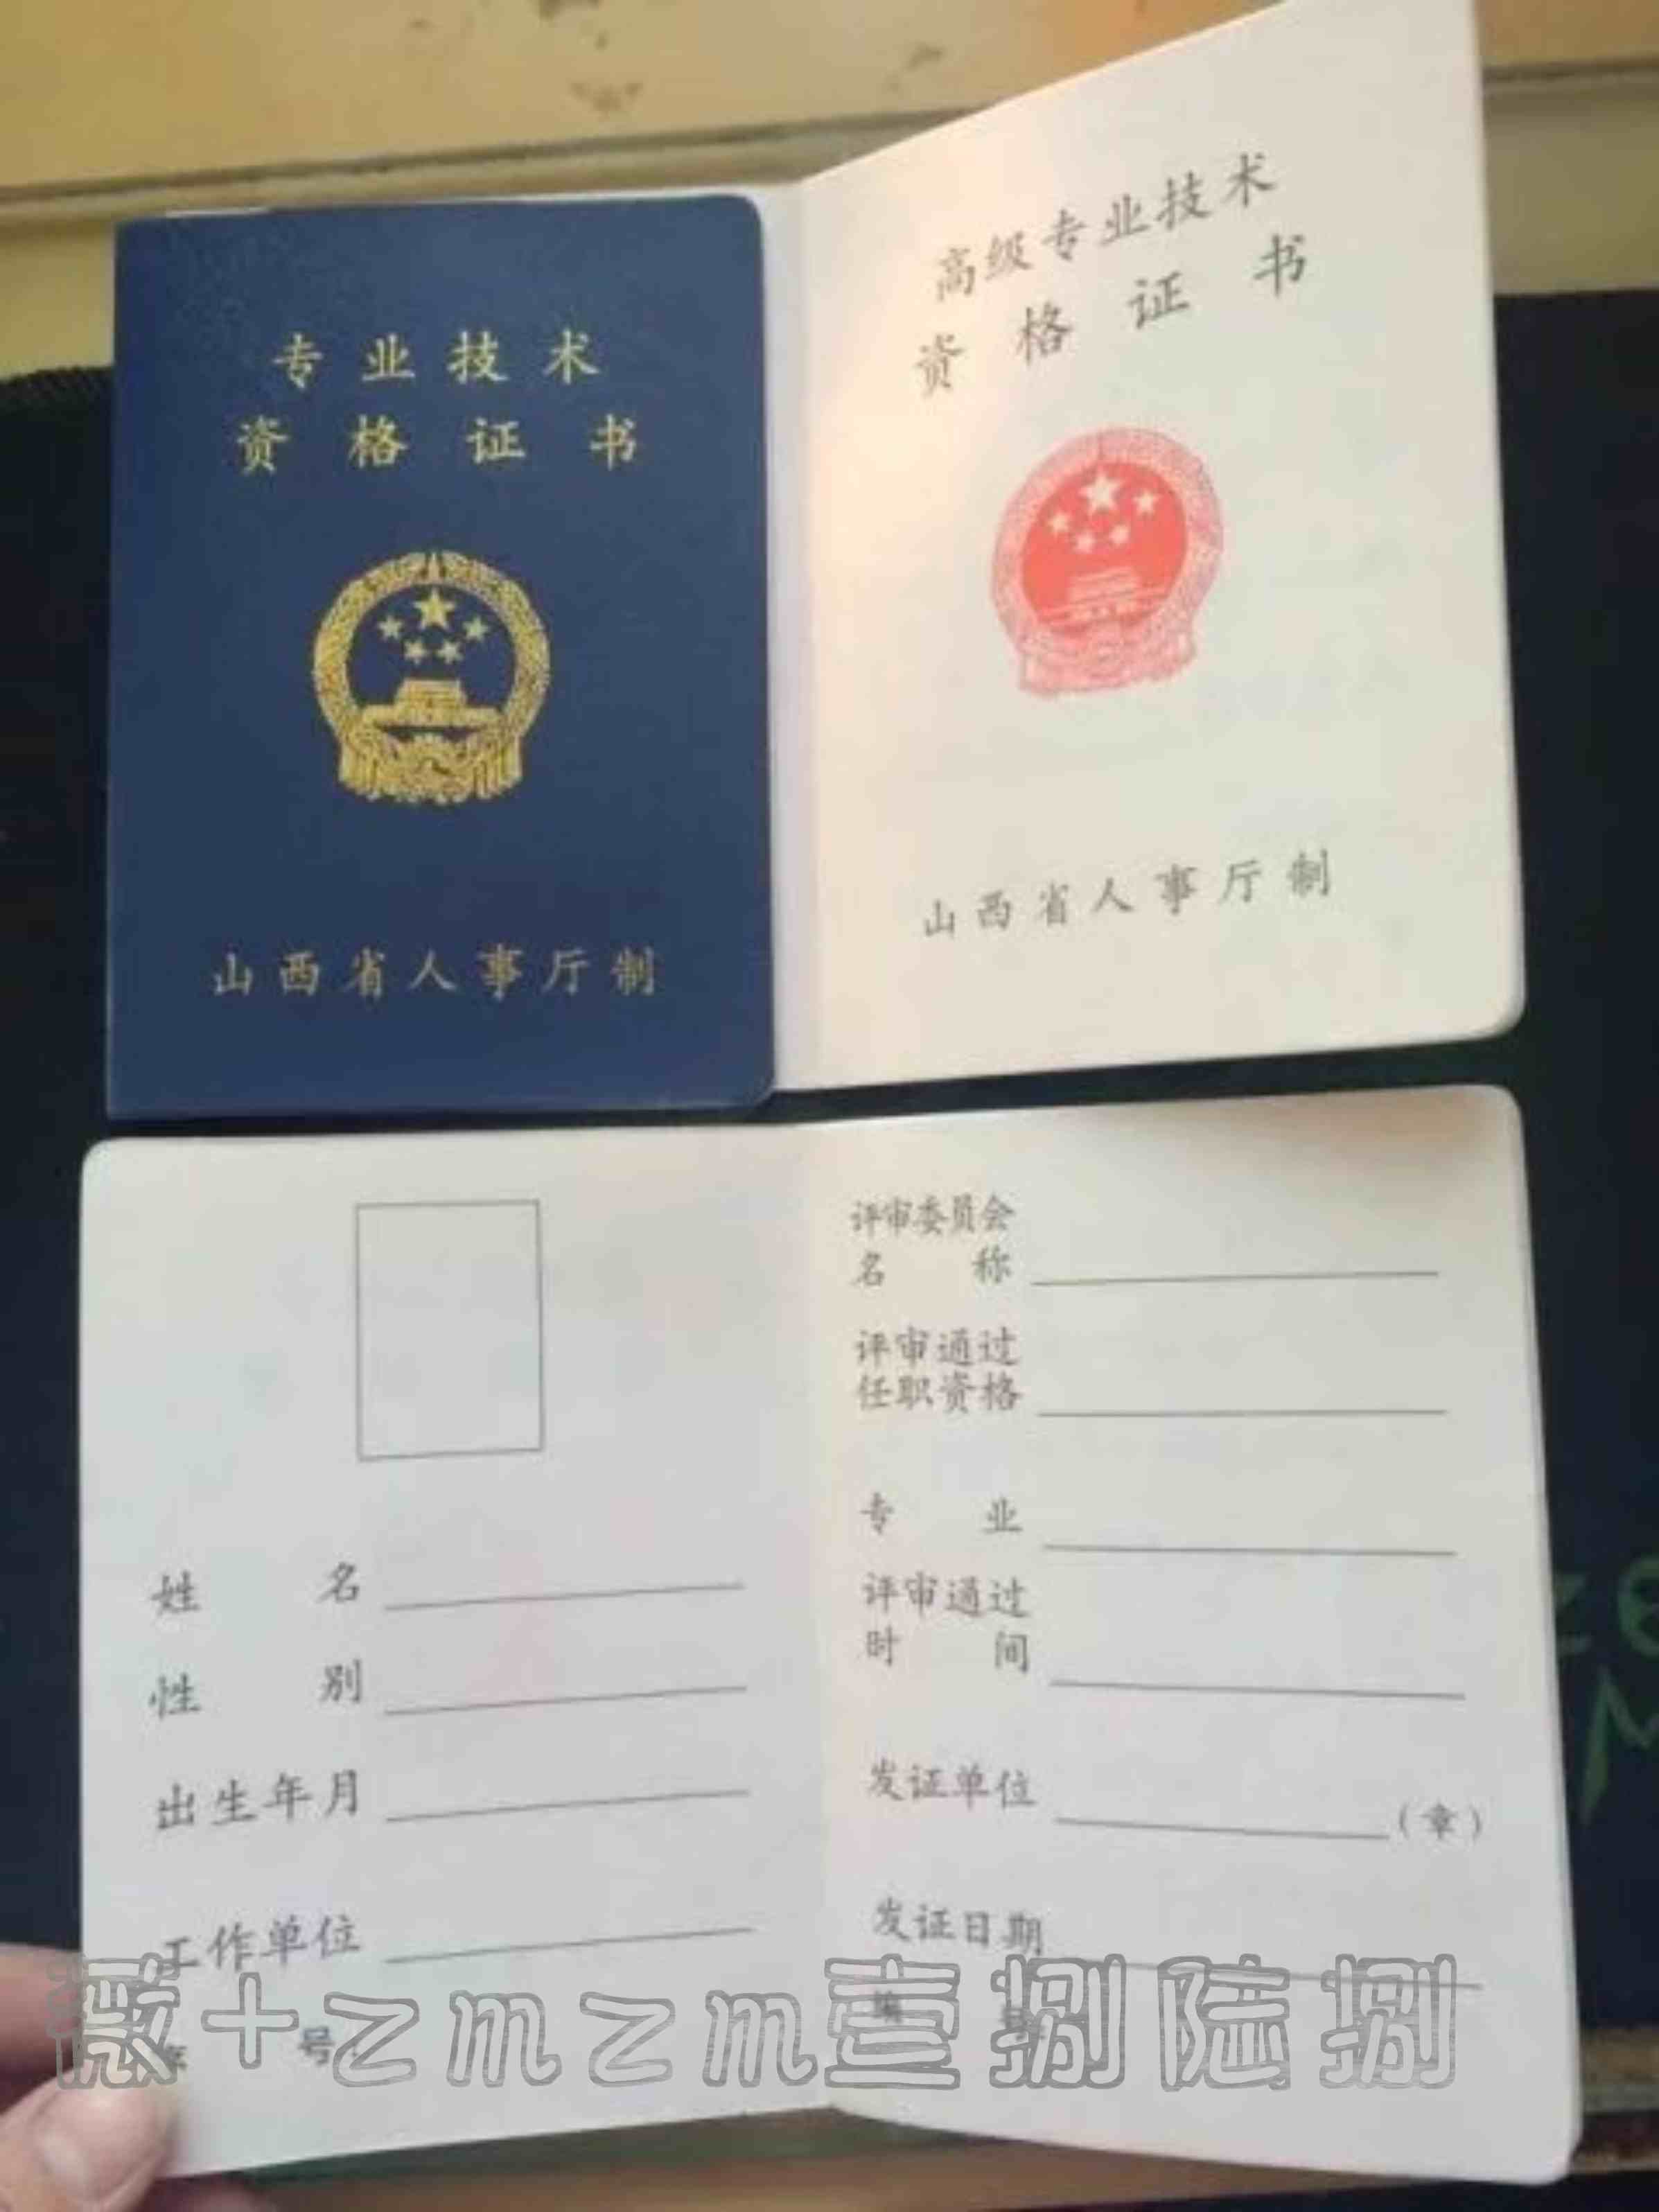 专业技术
资格证书
山西省人事厅制
高级专业技术
资格证书
山西省人事厅制
姓名
性别
出生年月
工作单位
号
评审委员会
名称
评审通过
任职资格
专业
评审通过
时间
发证单位 (章)
发证日期
编号
薇+zmzm壹捌陆捌